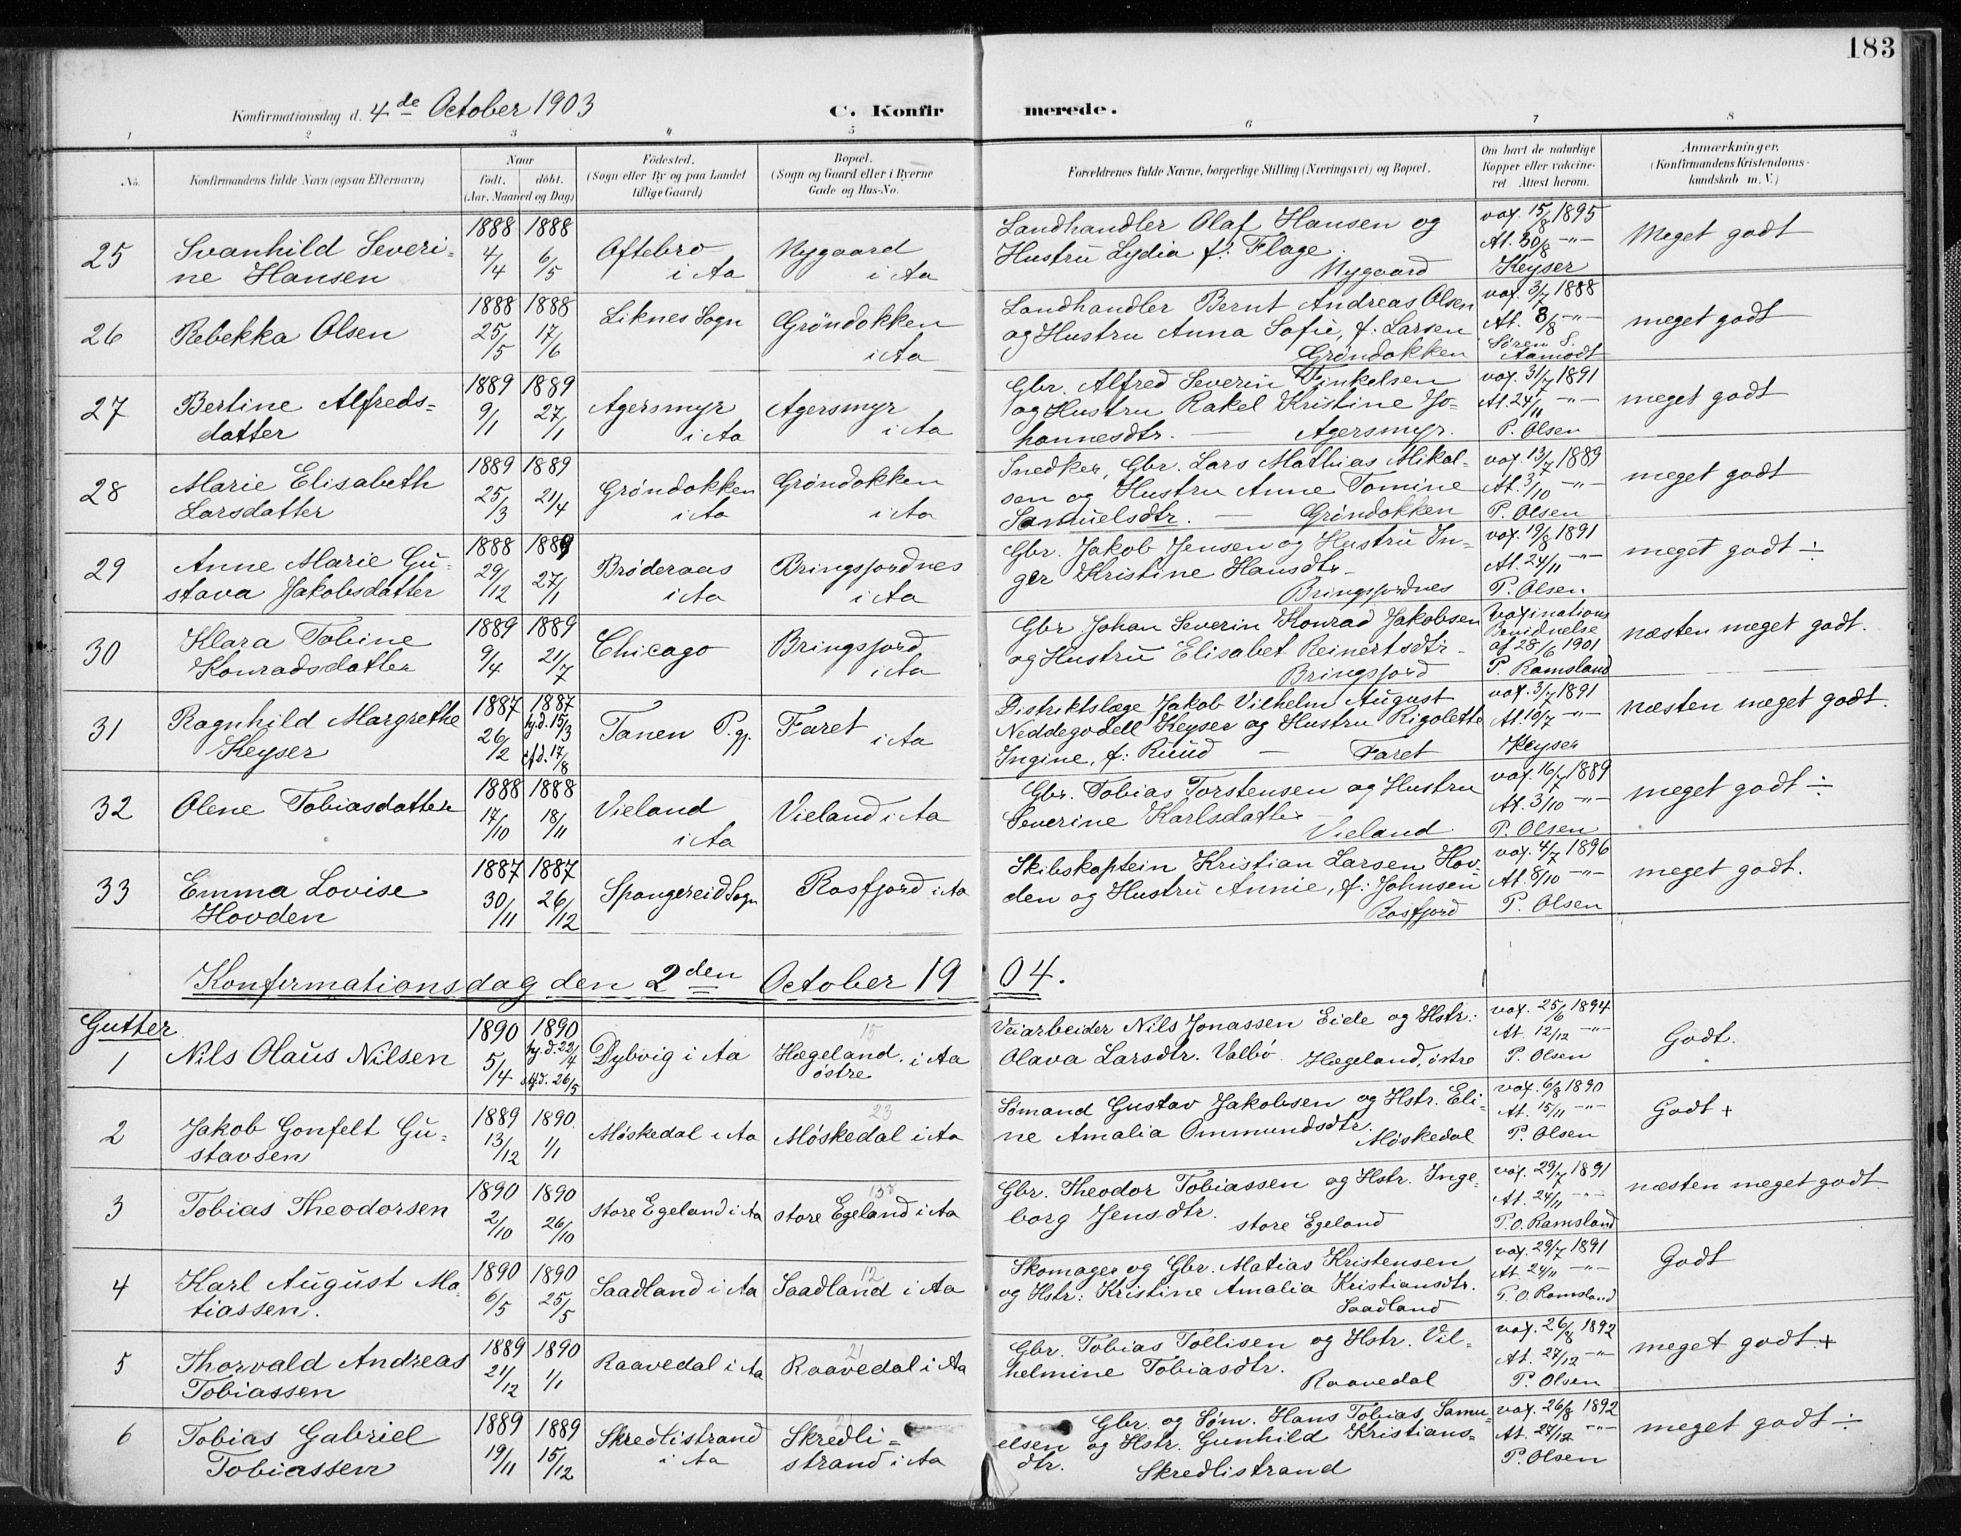 183
Konfirmationsdag d. 4de October 1903
C. Konfirmerede.
1 2 3 4 5 6 7 8
No. Konfirmandens fulde Navn (ogsaa Efternavn) Naar født. døbt. (Aar, Maaned og Dag) Fødested. (Sogn eller By og paa Landet tillige Gaard) Bopæl. (Sogn og Gaard eller i Byerne Gade og Hus-No. Forældrenes fulde Navne, borgerlige Stilling (Næringsvei) og Bopæl. Om havt de naturlige Kopper eller vakcineret. Attest herom. Anmærkninger. (Konfirmandens Kristendomskundskab m. V.)
25 Svanhild Severine Hansen 1888 4/4 1888 6/5 Oftebro i Aa Nygaard i Aa Landhandler Olaf Hansen og Hustru Lydia f: Flage. Nygaard vax. 15/8 1895 At. 30/8 -"- Keyser Meget godt
26 Rebekka Olsen 1888 25/5 1888 17/6 Liknes Sogn Grøndokken i Aa Landhandler Bernt Andreas Olsen og Hustru Anna Sofie, f. Larsen Grøndokken vax. 3/7 1888 At. 8/8 -"- Søren S. Aamodt meget godt
27 Bertine Alfredsdatter 1889 9/1 1889 27/1 Agersmyr i Aa Agersmyr i Aa Gbr. Alfred Severin Finkelsen og Hustru Rakel Kristine Johannesdtr. — Agersmyr. vax. 31/7 1891 At. 24/11 -"- P. Olsen meget godt
28 Marie Elisabeth Larsdatter 1889 25/3 1889 21/4 Grøndokken i Aa Grøndokken i Aa Snedker, Gbr. Lars Mathias Mikalsen og Hustru Anne Tomine Samuelsdtr. — Grøndokken vax. 13/7 1889 At. 3/10 -"- P. Olsen meget godt
29 Anne Marie Gustava Jakobsdatter 1888 29/12 1889 27/1 Brøderaas i Aa Bringsfjordnes i Aa Gbr. Jakob Jensen og Hustru Inger Kristine Hansdtr. Bringsfjordnes vax. 19/8 1891 At. 24/11 -"- P. Olsen meget godt ÷
30 Klara Tobine Konradsdatter 1889 9/4 1889 21/7 Chicago Bringsfjord i Aa Gbr Johan Severin Konrad Jakobsen og Hustru Elisabet Reinertsdtr. Bringsfjord Vaxinations Bevidnelse af 28/6 1901 P. Ramsland næsten meget godt.
31 Ragnhild Margrethe Keyser 1887 26/2 1887 hj.d. 15/3 stf.d. 17/8 Tanen P.gj. Faret i Aa Distriktslæge Jakob Vilhelm August Neddegodell Keyser og Hustru Rigolette Ingine, f: Ruud — Faret vax. 3/7 1891 At. 10/7 -"- Keyser næsten meget godt.
32 Olene Tobiasdatter 1888 17/10 1888 18/11 Vieland i Aa Vieland i Aa Gbr. Tobias Torstensen og Hustru Severine Karlsdatter Vieland vax. 16/7 1889 At. 3/10 -"- P. Olsen meget godt ÷
33 Emma Lovise Hovden 1887 30/11 1887 26/12 Spangereid Sogn Rosfjord i Aa Skibskaptein Kristian Larsen Hovden og Hustru Annie, f: Johnsen Rosfjord vax. 4/7 1896 At. 8/10 -"- P. Olsen meget godt.
Konfirmationsdag den 2den October 1904.
Gutter.
1 Nils Olaus Nilsen 1890 5/4 1890 hj.d. 22/4 stf.d. 26/5 Dybvig i Aa Hægeland, østre i Aa 15 Veiarbeider Nils Jonassen Eide og Hstr: Olava Larsdtr. Valbø. Hægeland, østre vax. 25/6 1894 At. 12/12 -"- P. Olsen Godt.
2 Jakob Gonfelt Gustavsen 1889 13/12 1890 1/1 Møskedal i Aa Møskedal i Aa 23 Sømand Gustav Jakobsen og Hstr. Eline Amalia Ommundsdtr. Møskedal vax. 6/8 1890 At. 15/11 -"- P. Olsen Godt +
3 Tobias Theodorsen 1890 2/10 1890 26/10 store Egeland i Aa store Egeland i Aa Gbr. Theodor Tobiassen og Hstr. Ingeborg Jensdtr. store Egeland vax. 29/7 1891 At. 24/11 -"- P.O. Ramsland næsten meget godt
4 Karl August Matiassen. 1890 6/5 1890 25/5 Saadland i Aa Saadland i Aa 12 Skomager og Gbr. Matias Kristensen og Hstr: Kristine Amalia Kristiansdtr. Saadland vax. 29/7 1891 At. 24/11 -"- P.O. Ramsland Godt
5 Thorvald Andreas Tobiassen 1889 21/12 1890 1/1 Raavedal i Aa Raavedal i Aa 21 Gbr. Tobias Tollisen og Hstr. Vilhelmine Tobiasdtr. Raavedal vax. 26/8 1892 At. 27/12 -"- P. Olsen meget godt. +
6 Tobias Gabriel Tobiassen 1889 19/11 1889 15/12 Skredlistrand i Aa Skredlistrand i Aa Gbr. og Søm. Hans Tobias Samuelsen og Hstr. Gunhild Kristiansdtr. Skredlistrand vax. 26/8 1892 At. 27/12 -"- P. Olsen meget godt ÷